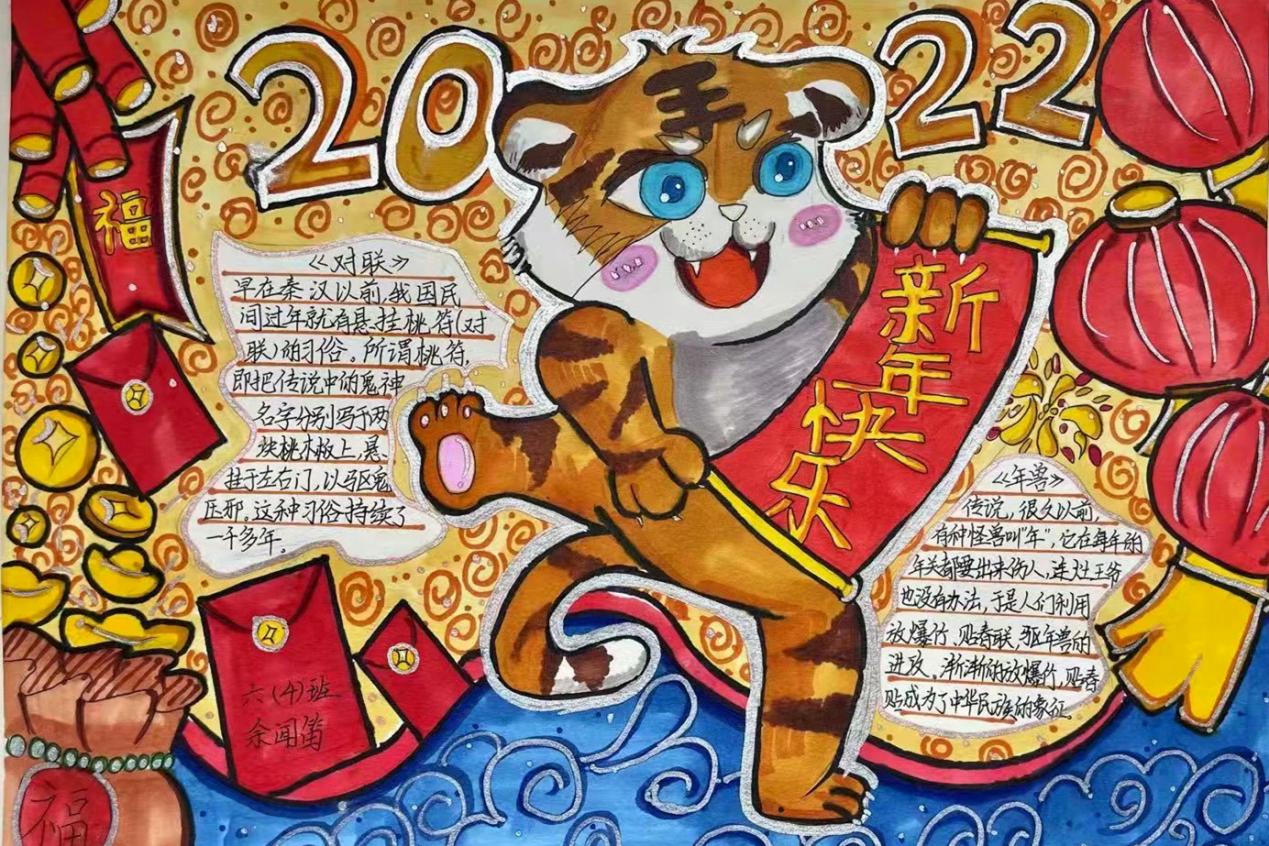 2022
福
新年快乐
《对联》
早在秦汉以前,我国民
间过年就有悬挂桃符(对
联)的习俗。所谓桃符,
即把传说中的鬼神
名字分别写于两
块桃木板上,悬
挂于左右门,以驱鬼
压邪。这种习俗持续了
一千多年。
《年兽》
传说,很久以前,
有种怪兽叫"年",它在每年的
年关都要出来伤人,连灶王爷
也没有办法,于是人们利用
放爆竹、贴春联,驱年兽的
进攻。渐渐的放爆竹,贴春
贴成为了中华民族的象征
六(4)班
余闻笛
福